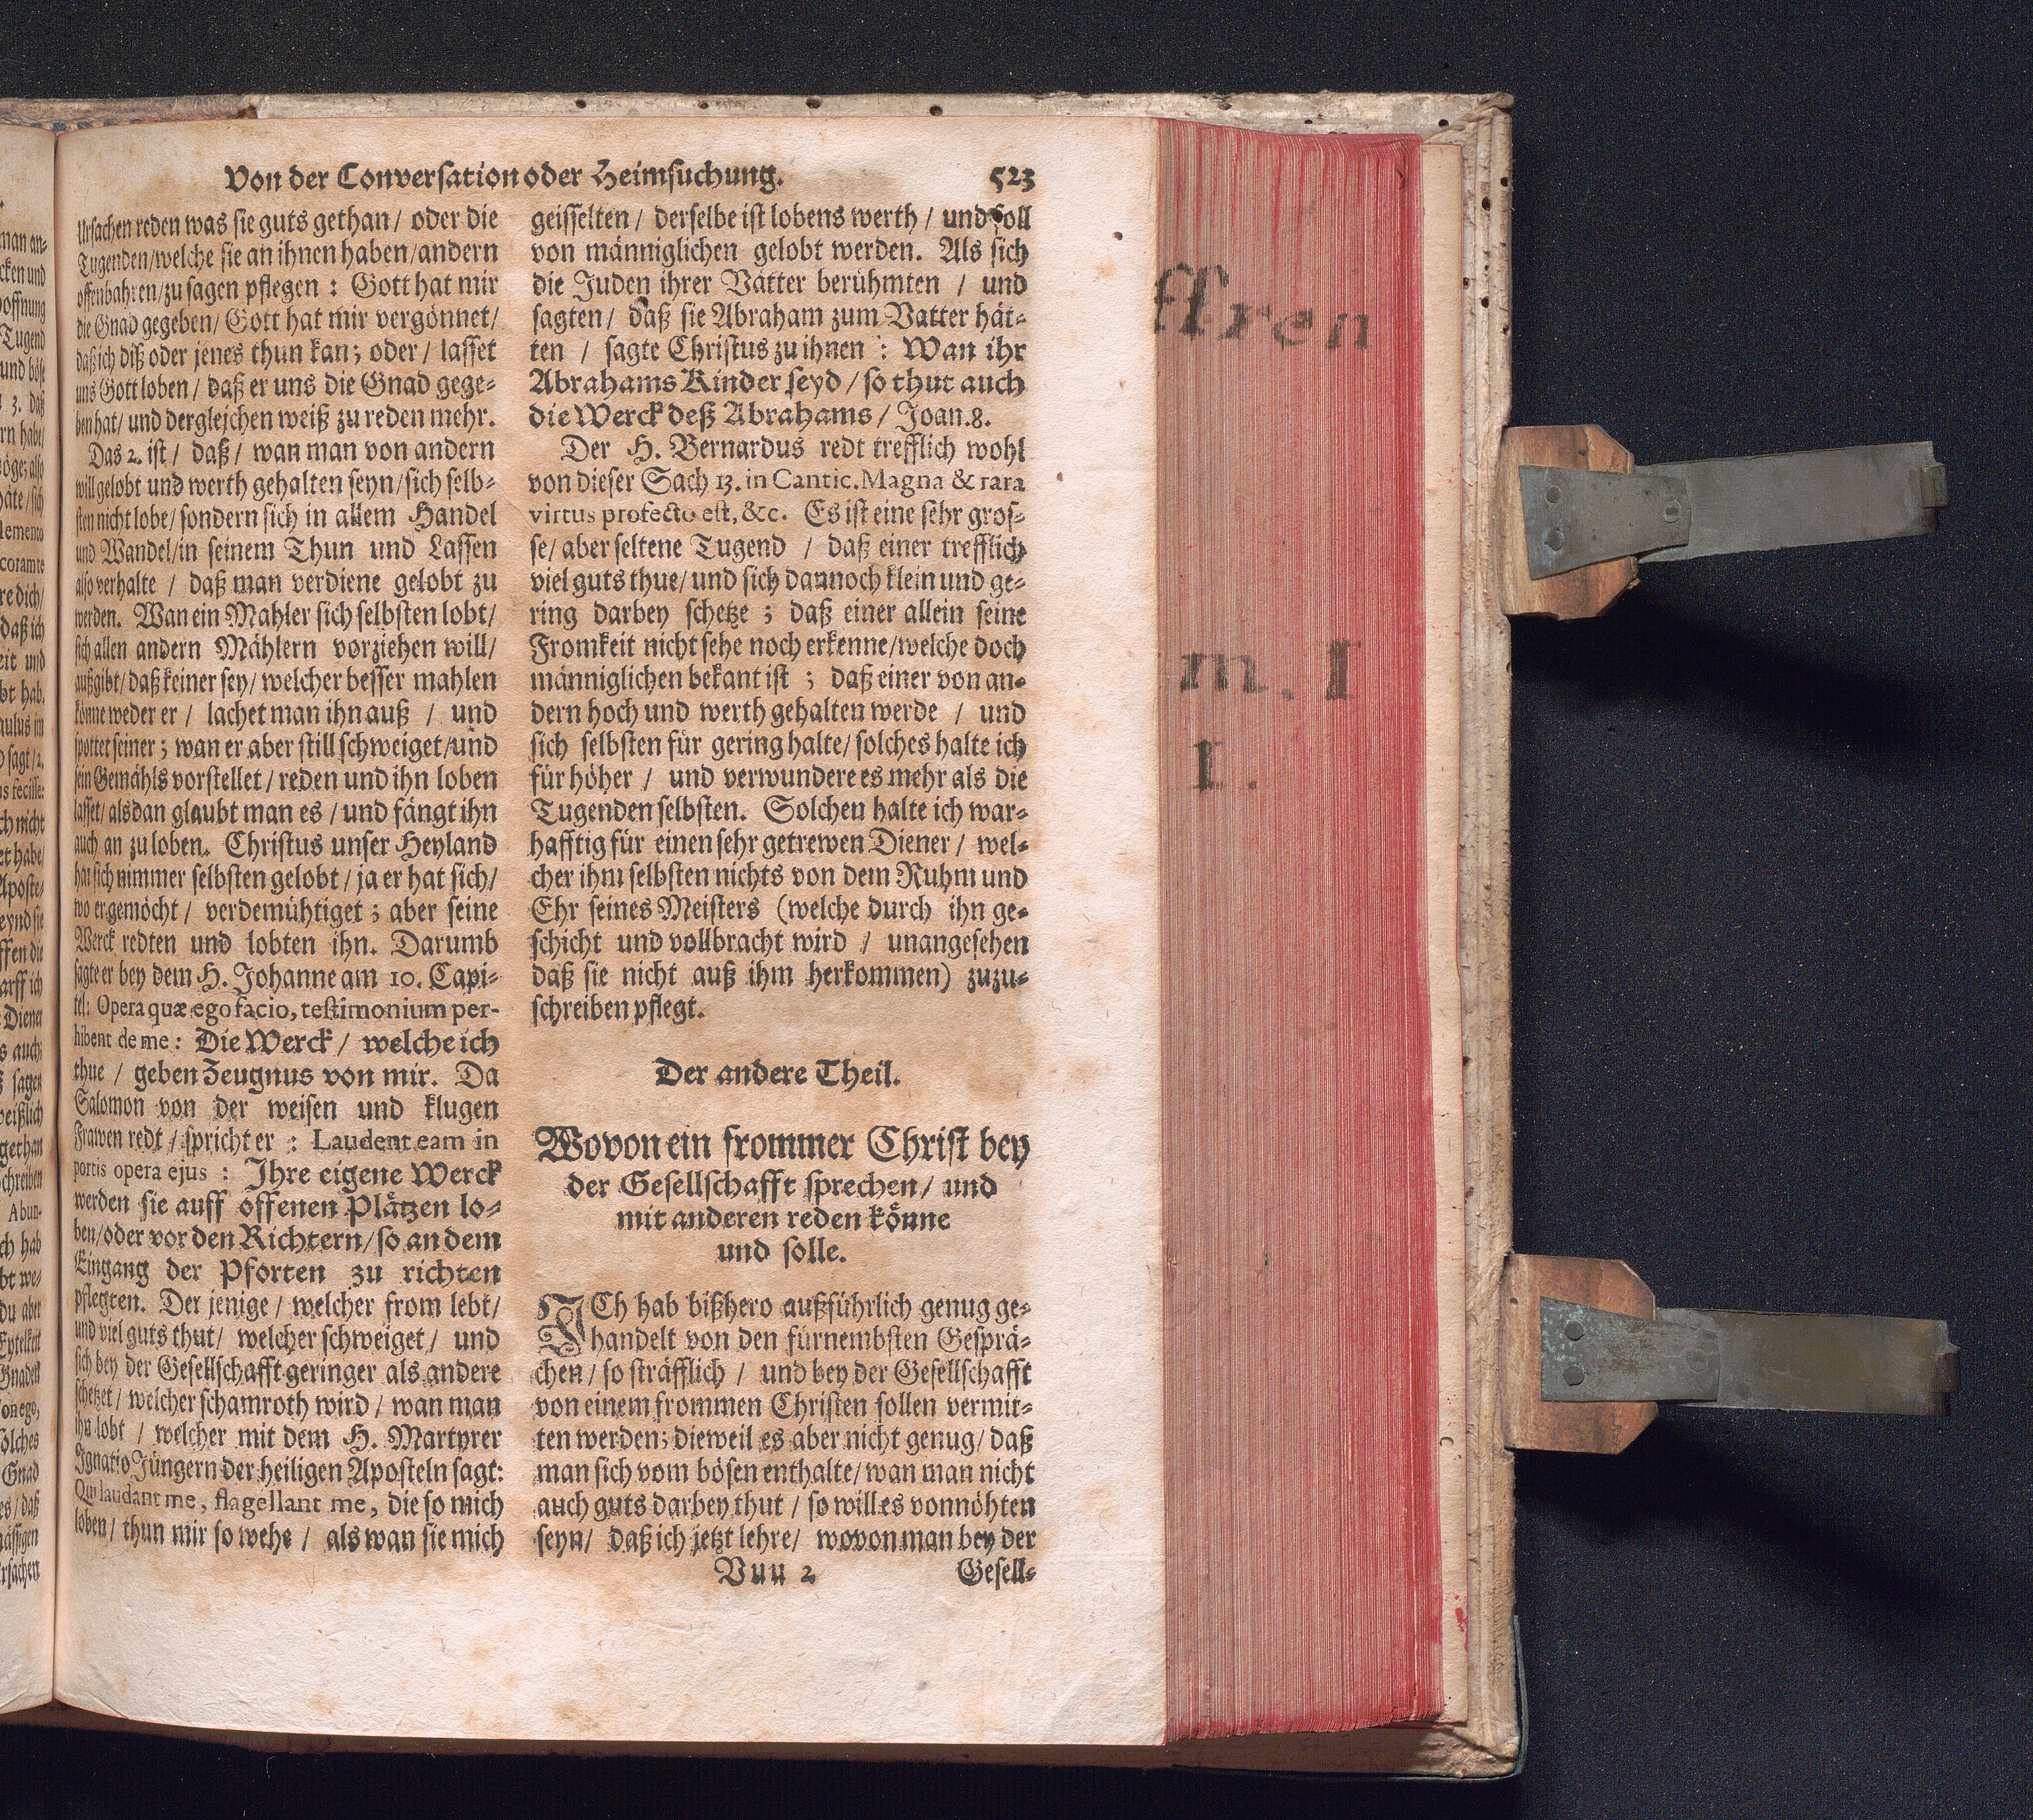 Von der Conversation oder Heimsuchung. 523
Ursachen reden was sie guts gethan / oder die
Tugenden / welche sie an ihnen haben / andern
offenbahren / zu sagen pflegen : Gott hat mir
die Gnad gegeben / Gott hat mir vergönnet /
daß ich diß oder jenes thun kan ; oder / lasset
uns Gott loben / daß er uns die Gnad gege-
ben hat / und dergleichen weiß zu reden mehr.
Das 2. ist / daß / wan man von andern
will gelobt und werth gehalten seyn / sich selb-
sten nicht lobe / sondern sich in allem Handel
und Wandel / in seinem Thun und Lassen
also verhalte / daß man verdiene gelobt zu
werden. Wan ein Mahler sich selbsten lobt /
sich allen andern Mählern vorziehen will /
außgibt / daß keiner sey / welcher besser mahlen
könne weder er / lachet man ihn auß / und
spottet seiner ; wan er aber still schweiget / und
sein Gemähls vorstellet / reden und ihn loben
lasset / alsdan glaubt man es / und fängt ihn
auch an zu loben. Christus unser Heyland
hat sich nimmer selbsten gelobt / ja er hat sich /
wo er gemöcht / verdemühtiget ; aber seine
Werck redten und lobten ihn. Darumb
sagte er bey dem H. Johanne am 10. Capi-
tel: Opera quæ ego facio, testimonium per-
hibent de me : Die Werck / welche ich
thue / geben Zeugnus von mir. Da
Salomon von der weisen und klugen
Frawen redt / spricht er : Laudent eam in
portis opera ejus : Ihre eigene Werck
werden sie auff offenen Plätzen lo-
ben / oder vor den Richtern / so an dem
Eingang der Pforten zu richten
pflegten. Der jenige / welcher from lebt /
und viel guts thut / welcher schweiget / und
sich bey der Gesellschafft geringer als andere
schetzet / welcher schamroth wird / wan man
ihn lobt / welcher mit dem H. Martyrer
Ignatio Jüngern der heiligen Aposteln sagt:
Qui laudant me, flagellant me, die so mich
loben / thun mir so wehe / als wan sie mich
geisselten / derselbe ist lobens werth / und soll
von männiglichen gelobt werden. Als sich
die Juden ihrer Vätter berühmten / und
sagten / daß sie Abraham zum Vatter hät-
ten / sagte Christus zu ihnen : Wan ihr
Abrahams Kinder seyd / so thut auch
die Werck deß Abrahams / Joan. 8.
Der H. Bernardus redt trefflich wohl
von dieser Sach 13. in Cantic. Magna & rara
virtus profecto est, &c. Es ist eine sehr gros-
se / aber seltene Tugend / daß einer trefflich
viel guts thue / und sich dannoch klein und ge-
ring darbey schetze ; daß einer allein seine
Fromkeit nicht sehe noch erkenne / welche doch
männiglichen bekant ist ; daß einer von an-
dern hoch und werth gehalten werde / und
sich selbsten für gering halte / solches halte ich
für höher / und verwundere es mehr als die
Tugenden selbsten. Solchen halte ich war-
hafftig für einen sehr getrewen Diener / wel-
cher ihm selbsten nichts von dem Ruhm und
Ehr seines Meisters (welche durch ihn ge-
schicht und vollbracht wird / unangesehen
daß sie nicht auß ihm herkommen) zuzu-
schreiben pflegt.
Der andere Theil.
Wovon ein frommer Christ bey
der Gesellschafft sprechen / und
mit anderen reden könne
und solle.
ICh hab bißhero außführlich genug ge-
handelt von den fürnembsten Gesprä-
chen / so sträfflich / und bey der Gesellschafft
von einem frommen Christen sollen vermit-
ten werden; dieweil es aber nicht genug / daß
man sich vom bösen enthalte / wan man nicht
auch guts darbey thut / so will es vonnöhten
seyn / daß ich jetzt lehre / wovon man bey der
Vuu 2 Gesell-
ffren
m. I
I.